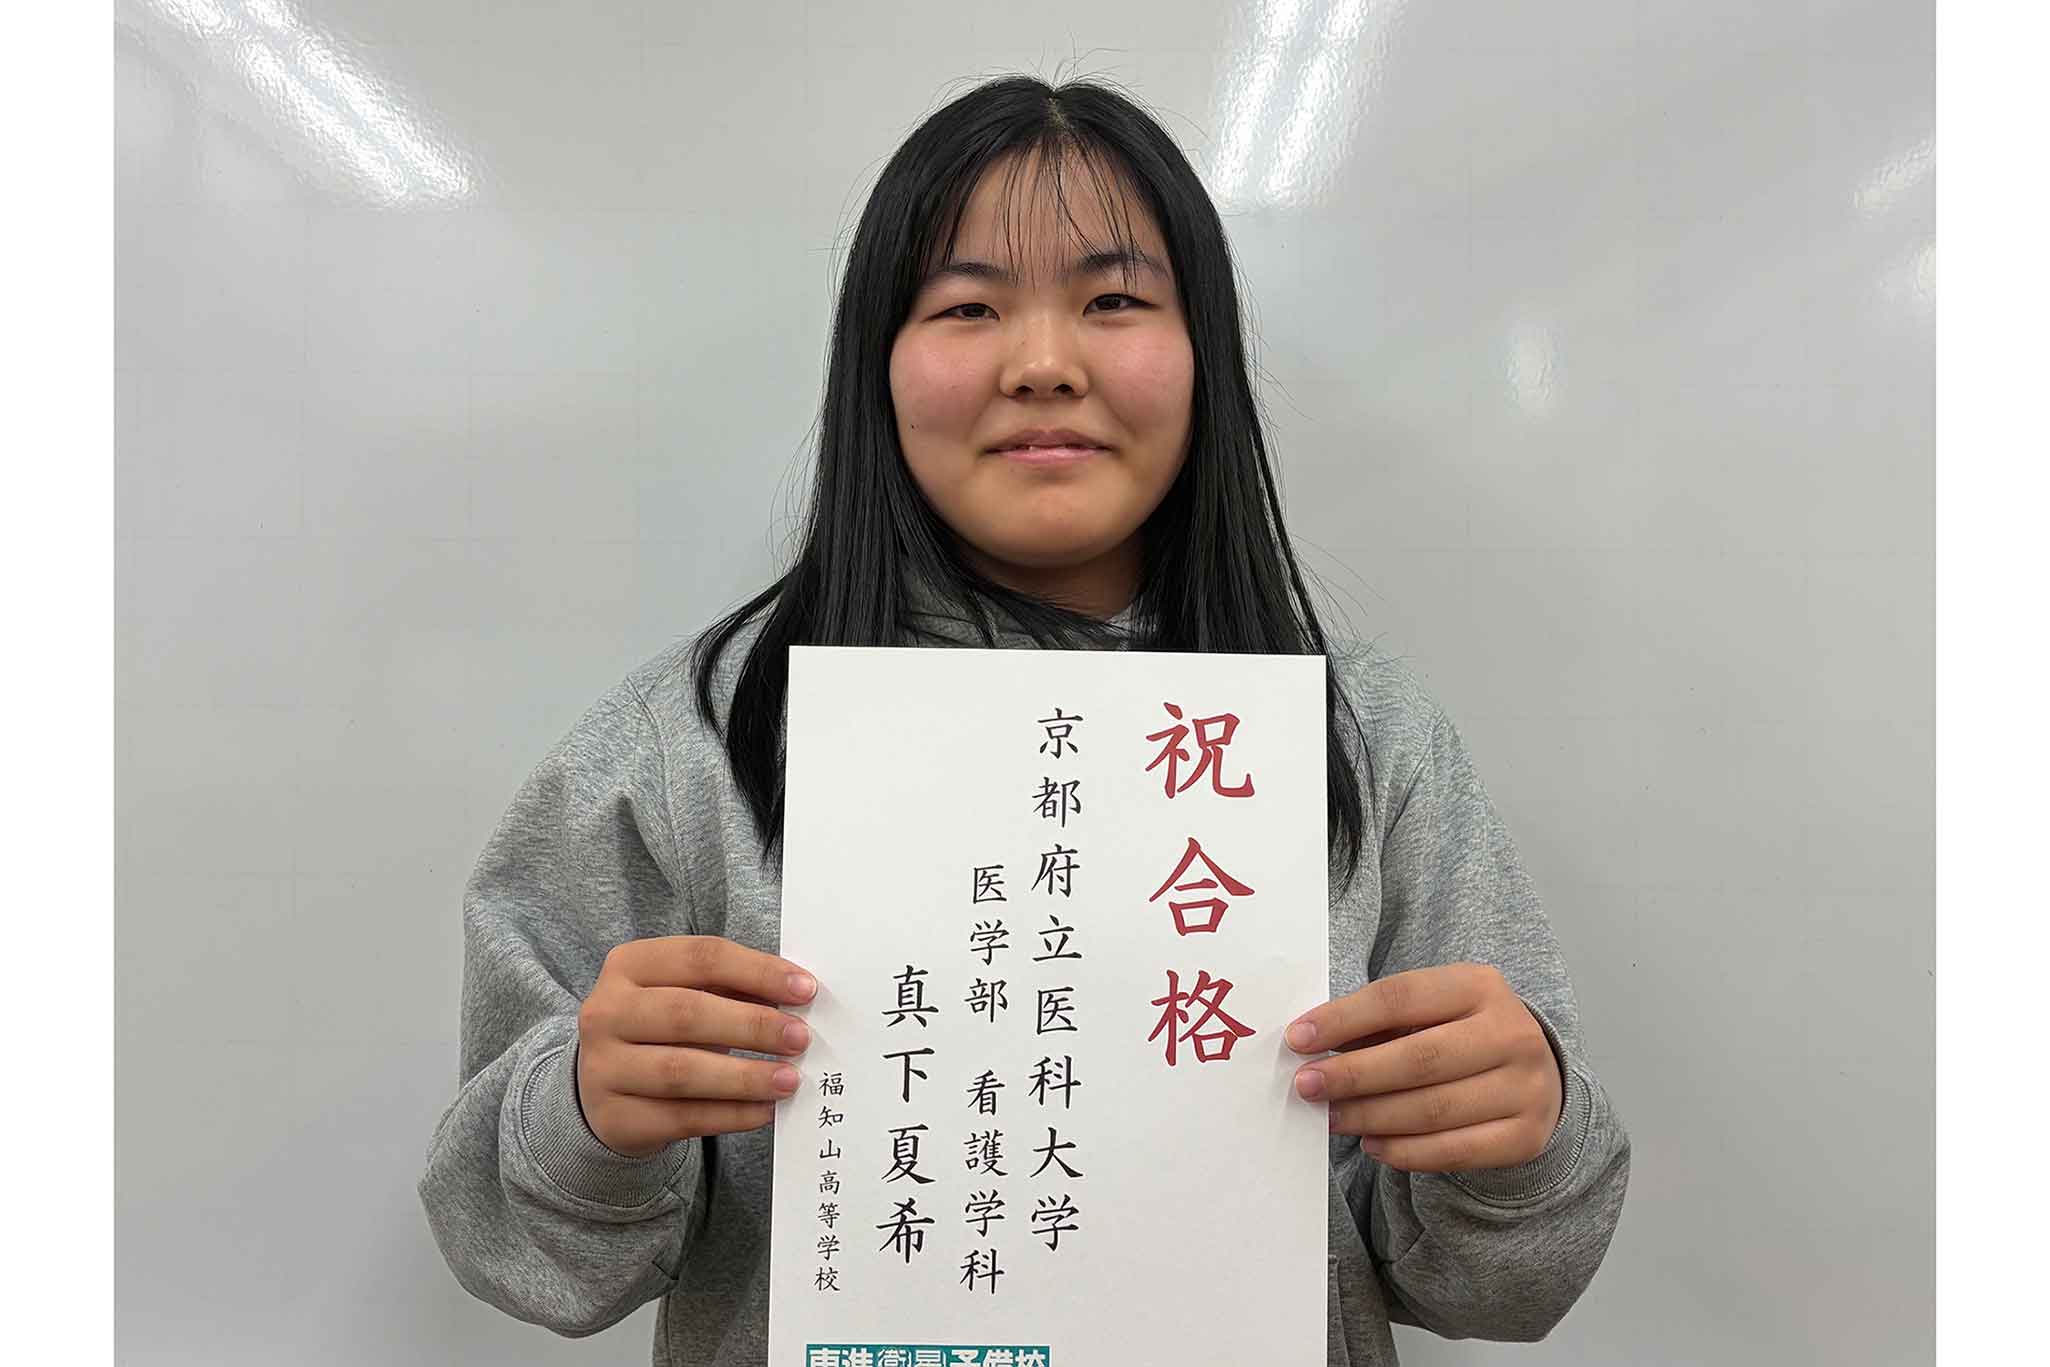 祝合格
京都府立医科大学
医学部 看護学科
真下夏希
福知山高等学校
東進衛星予備校